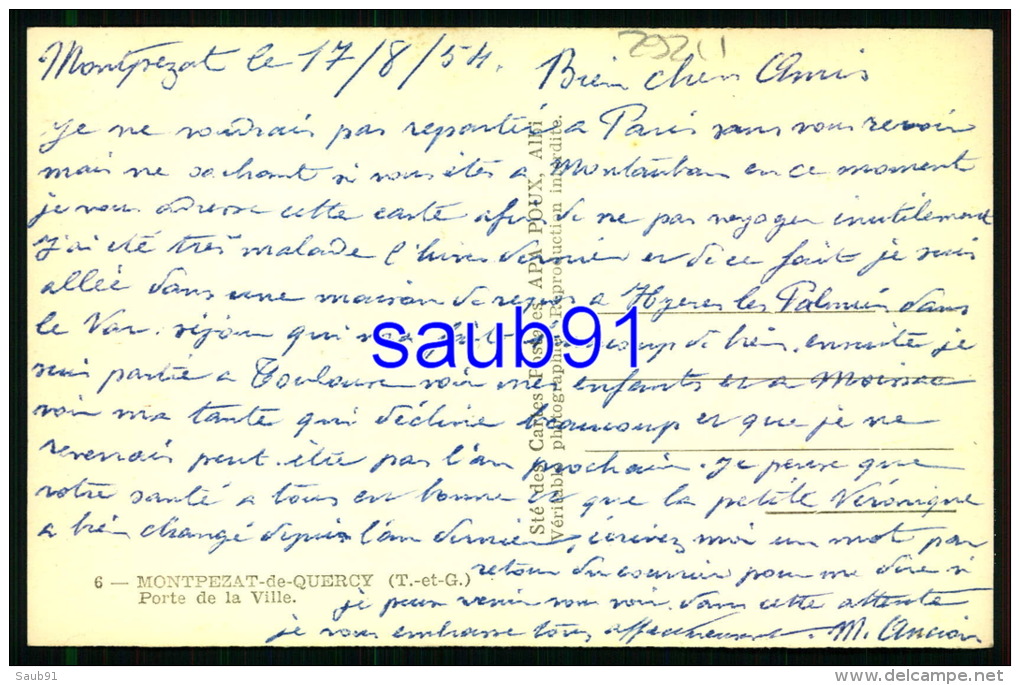 Montpezat le 17/8/54. Bien chers Amis
Je ne voudrais pas repartir a Paris sans vous revoir
mais ne sachant si vous êtes a Montauban en ce moment
je vous adresse cette carte afin de ne pas voyager inutilement
J'ai été très malade l'hiver dernier et de ce fait je suis
allée dans une maison de repos a Hyeres les Palmiers dans
le Var. séjour qui m'a fait beaucoup de bien. ensuite je
suis partie a Toulouse voir mes enfants et a Moissac
voir ma tante qui décline beaucoup et que je ne
reverrais peut-être pas l'an prochain. Je pense que
votre santé a tous est bonne et que la petite Véronique
a bien changé depuis l'an dernier, écrivez moi un mot par
retour du courrier pour me dire si
je peux venir vous voir. dans cette attente
je vous embrasse tous affectueusement. M.
6 — MONTPEZAT-de-QUERCY (T.-et-G.)
Porte de la Ville.
Sté des Cartes Postales APA POUX, Albi
Véritable photographie. Reproduction interdite.
saub91
Saub91
www.delcampe.net